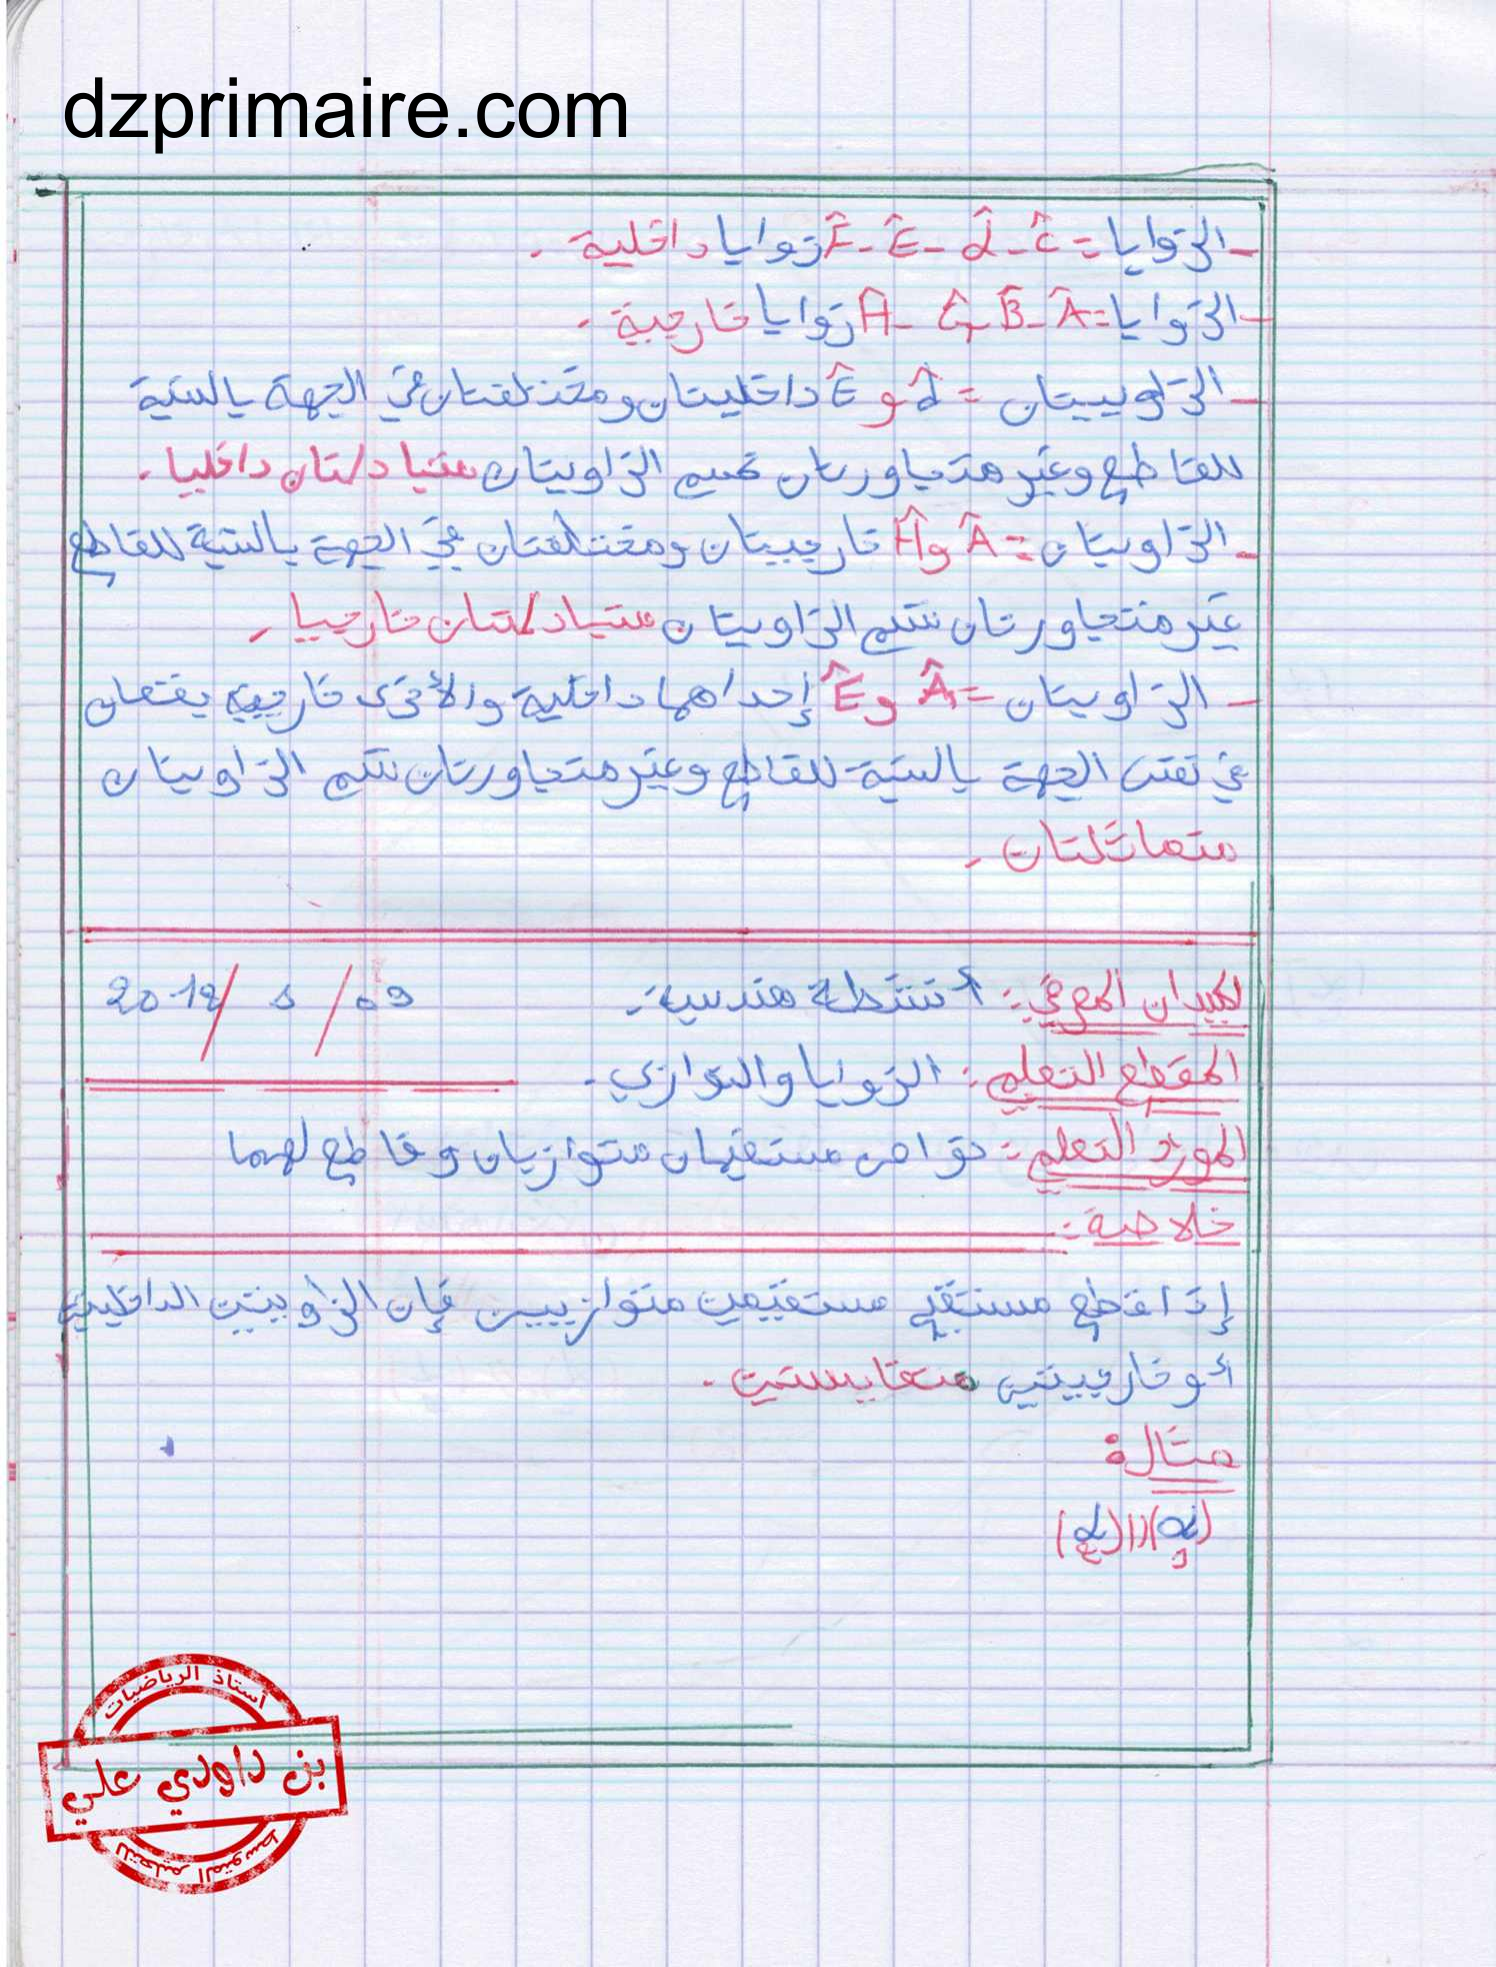 dzprimaire.com
- الزوايا = Ĉ - d̂ - Ê - F̂ زوايا داخلية .
- الزوايا = Â - B̂ - Ĝ - Ĥ زوايا خارجية .
- الزاويتان = d̂ و Ê داخليتان ومختلفتان في الجهة بالنسبة
للقاطع وغير متجاورتان نسمي الزاويتان متبادلتان داخليا .
- الزاويتان = Â و Ĥ خارجيتان ومختلفتان في الجهة بالنسبة للقاطع
غير متجاورتان نسمي الزاويتان متبادلتان خارجيا .
- الزاويتان = Â و Ê إحداهما داخلية والأخرى خارجية يقعان
في نفس الجهة بالنسبة للقاطع وغير متجاورتان نسمي الزاويتان
متماثلتان .
الميدان المعرفي : أنشطة هندسية . 09 / 1 / 2018
المقطع التعلمي : الزوايا والتوازي .
المورد التعلمي : خواص مستقيمان متوازيان وقاطع لهما
خلاصة :
إذا قطع مستقيم مستقيمين متوازيين فإن الزاويتين الداخليتين
أو خارجيتين متقايستين .
مثال :
أستاذ الرياضيات
بن داودي علي
للتعليم المتوسط